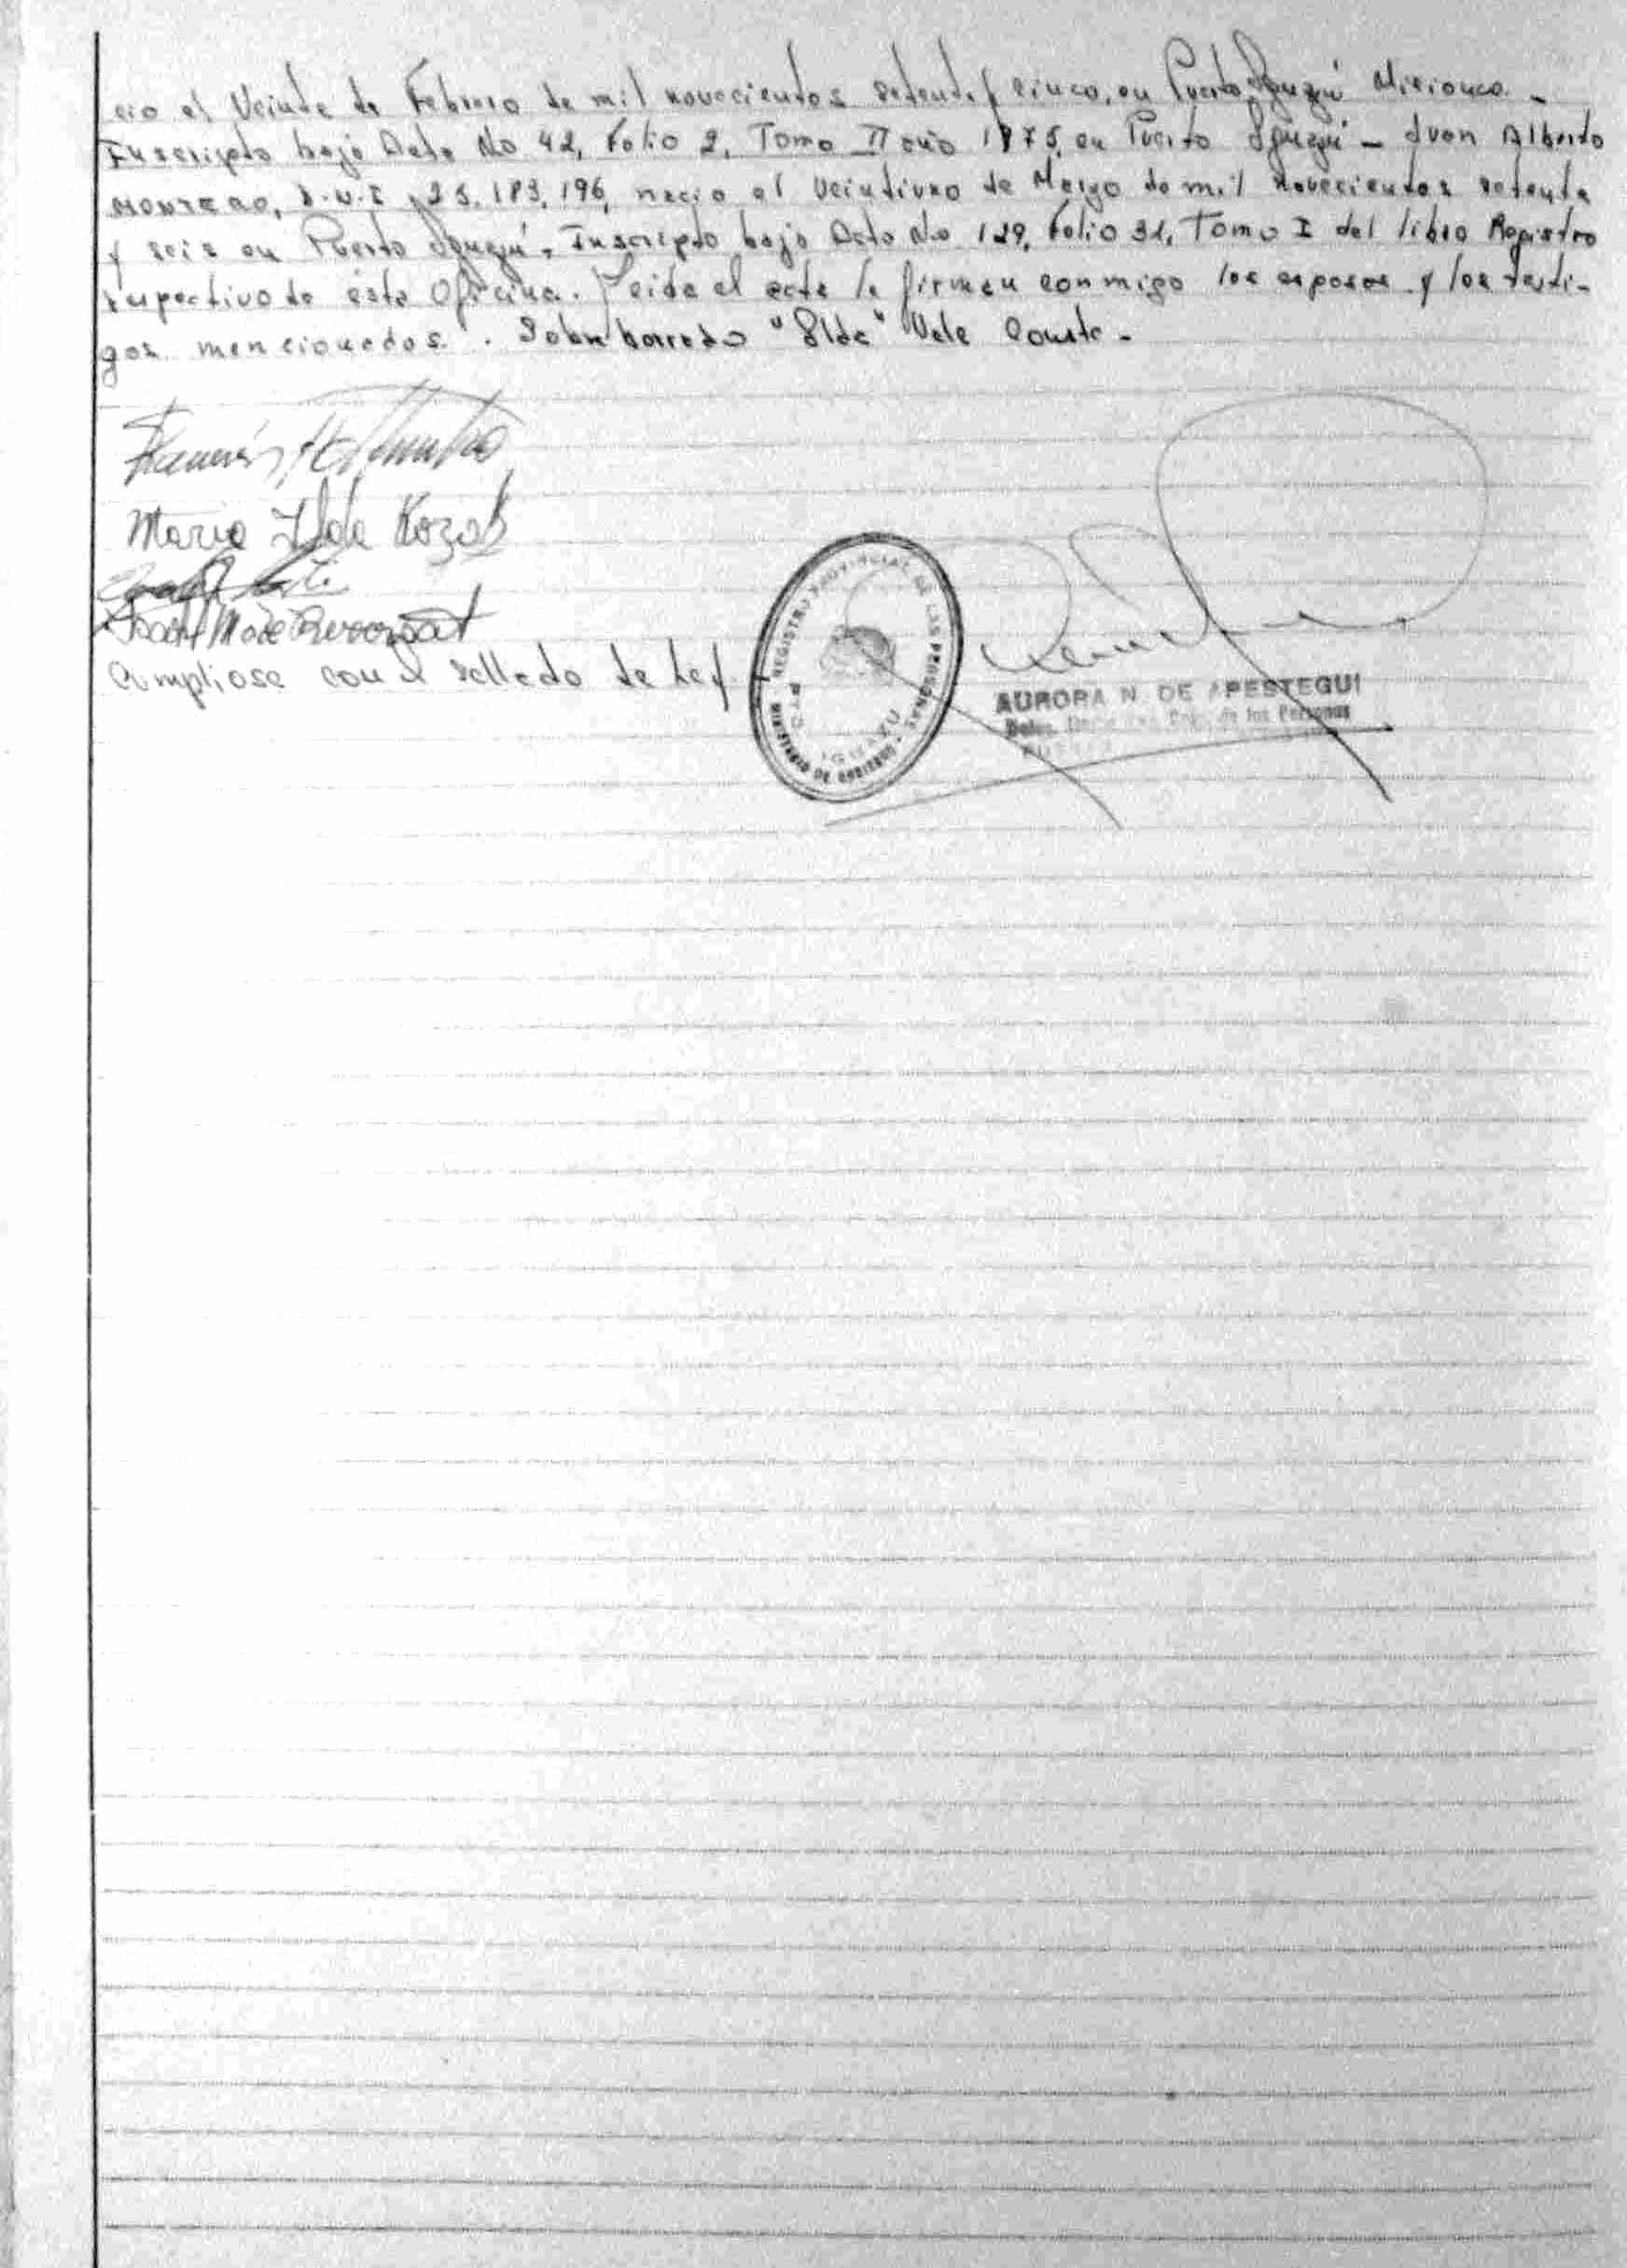 cio el Veinte de Febrero de mil novecientos setenta y cinco, en Puerto Iguazú Misiones. -
Inscripto bajo Acta No 42, Folio 2, Tomo II año 1975, en Puerto Iguazú - Juan Alberto
MONTERO, D.N.I 25.183.196, nacio el Veintiuno de Marzo de mil novecientos setenta
y seis en Puerto Iguazú. Inscripto bajo Acta No 129, Folio 31, Tomo I del libro Registro
respectivo de ésta Oficina. Leida el acta la firman conmigo los esposos y los testi-
gos mencionados. Sobre borrado "Ilda" Vale Conste -
Ramón
Maria Ilda Kozak
Cumpliose con el sellado de Ley.
REGISTRO PROVINCIAL DE LAS PERSONAS
MINISTERIO DE GOBIERNO
PTO IGUAZU
AURORA N. DE APESTEGUI
de las Personas